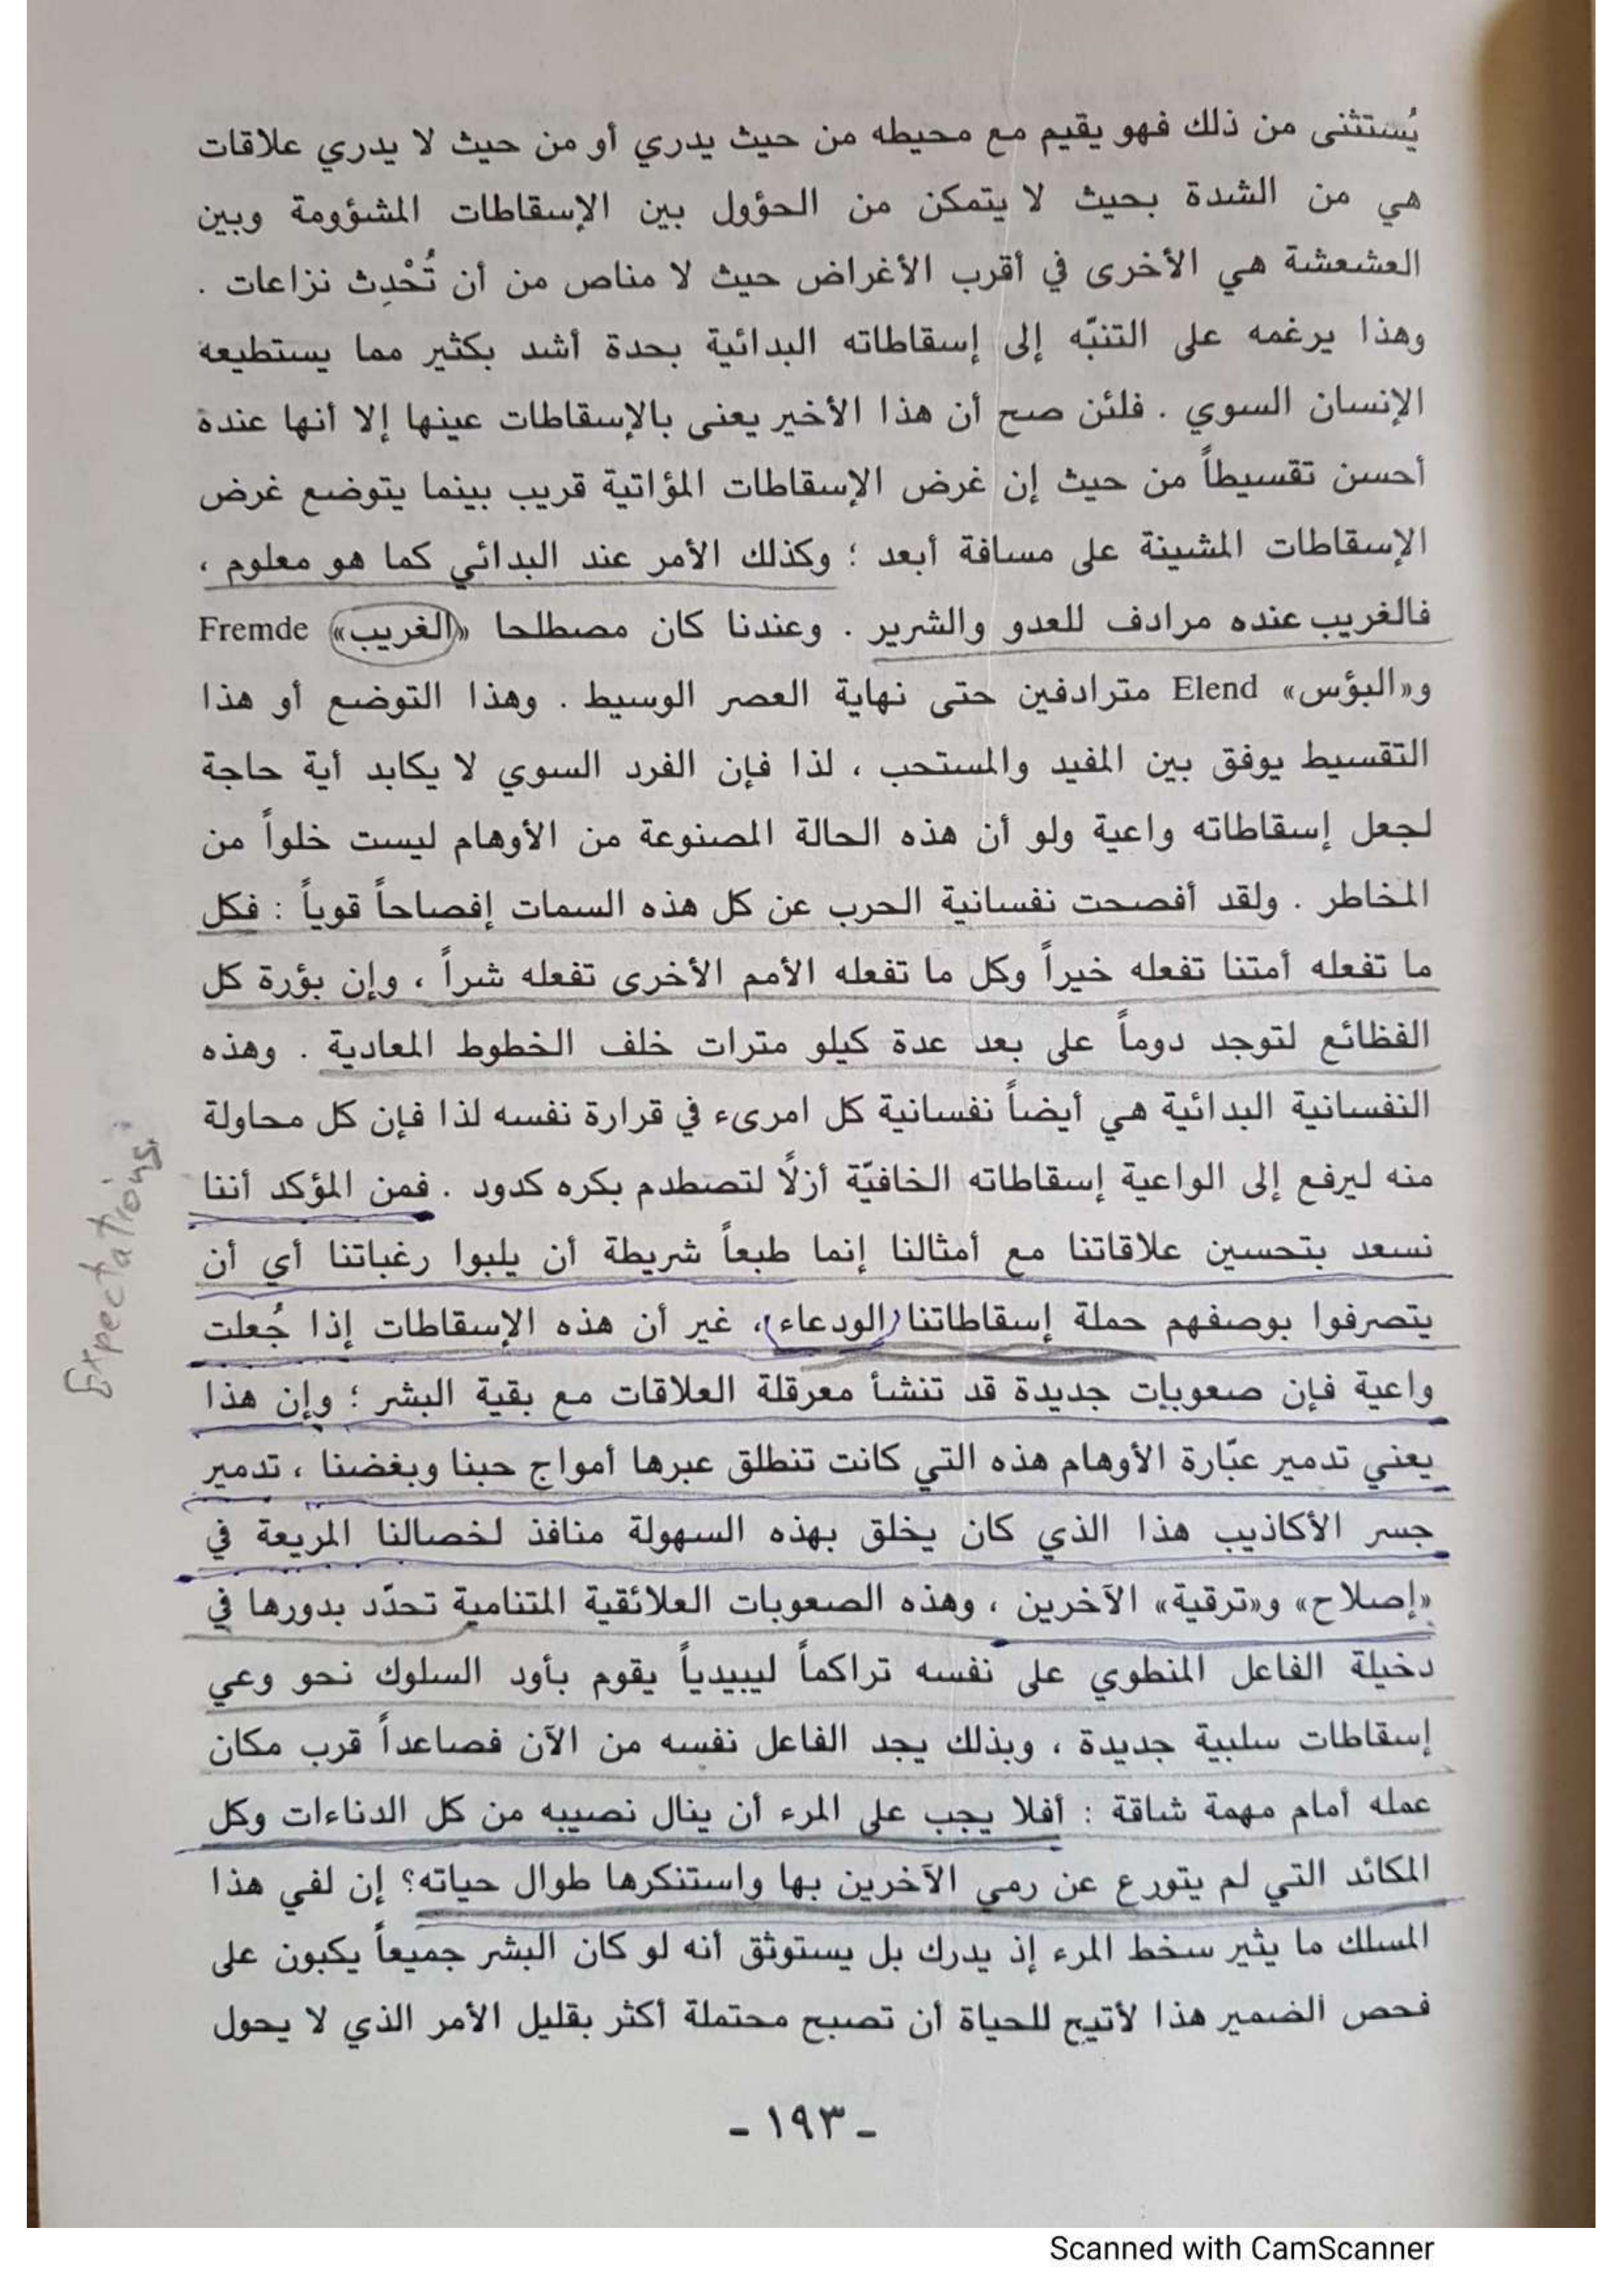 يُستثنى من ذلك فهو يقيم مع محيطه من حيث يدري أو من حيث لا يدري علاقات
هي من الشدة بحيث لا يتمكن من الحؤول بين الإسقاطات المشؤومة وبين
العشعشة هي الأخرى في أقرب الأغراض حيث لا مناص من أن تُحْدِث نزاعات .
وهذا يرغمه على التنبّه إلى إسقاطاته البدائية بحدة أشد بكثير مما يستطيعه
الإنسان السوي . فلئن صح أن هذا الأخير يعنى بالإسقاطات عينها إلا أنها عنده
أحسن تقسيطاً من حيث إن غرض الإسقاطات المؤاتية قريب بينما يتوضع غرض
الإسقاطات المشينة على مسافة أبعد ؛ وكذلك الأمر عند البدائي كما هو معلوم ،
فالغريب عنده مرادف للعدو والشرير . وعندنا كان مصطلحا «الغريب» Fremde
و«البؤس» Elend مترادفين حتى نهاية العصر الوسيط . وهذا التوضع أو هذا
التقسيط يوفق بين المفيد والمستحب ، لذا فإن الفرد السوي لا يكابد أية حاجة
لجعل إسقاطاته واعية ولو أن هذه الحالة المصنوعة من الأوهام ليست خلواً من
المخاطر . ولقد أفصحت نفسانية الحرب عن كل هذه السمات إفصاحاً قوياً : فكل
ما تفعله أمتنا تفعله خيراً وكل ما تفعله الأمم الأخرى تفعله شراً ، وإن بؤرة كل
الفظائع لتوجد دوماً على بعد عدة كيلو مترات خلف الخطوط المعادية . وهذه
النفسانية البدائية هي أيضاً نفسانية كل امرىء في قرارة نفسه لذا فإن كل محاولة
منه ليرفع إلى الواعية إسقاطاته الخافيّة أزلًا لتصطدم بكره كدود . فمن المؤكد أننا
نسعد بتحسين علاقاتنا مع أمثالنا إنما طبعاً شريطة أن يلبوا رغباتنا أي أن
يتصرفوا بوصفهم حملة إسقاطاتنا (الودعاء)، غير أن هذه الإسقاطات إذا جُعلت
واعية فإن صعوبات جديدة قد تنشأ معرقلة العلاقات مع بقية البشر ؛ وإن هذا
يعني تدمير عبّارة الأوهام هذه التي كانت تنطلق عبرها أمواج حبنا وبغضنا ، تدمير
جسر الأكاذيب هذا الذي كان يخلق بهذه السهولة منافذ لخصالنا المريعة في
«إصلاح» و«ترقية» الآخرين ، وهذه الصعوبات العلائقية المتنامية تحدّد بدورها في
دخيلة الفاعل المنطوي على نفسه تراكماً ليبيدياً يقوم بأود السلوك نحو وعي
إسقاطات سلبية جديدة ، وبذلك يجد الفاعل نفسه من الآن فصاعداً قرب مكان
عمله أمام مهمة شاقة : أفلا يجب على المرء أن ينال نصيبه من كل الدناءات وكل
المكائد التي لم يتورع عن رمي الآخرين بها واستنكرها طوال حياته؟ إن لفي هذا
المسلك ما يثير سخط المرء إذ يدرك بل يستوثق أنه لو كان البشر جميعاً يكبون على
فحص الضمير هذا لأتيح للحياة أن تصبح محتملة أكثر بقليل الأمر الذي لا يحول
- ١٩٣ -
Expectations
Scanned with CamScanner